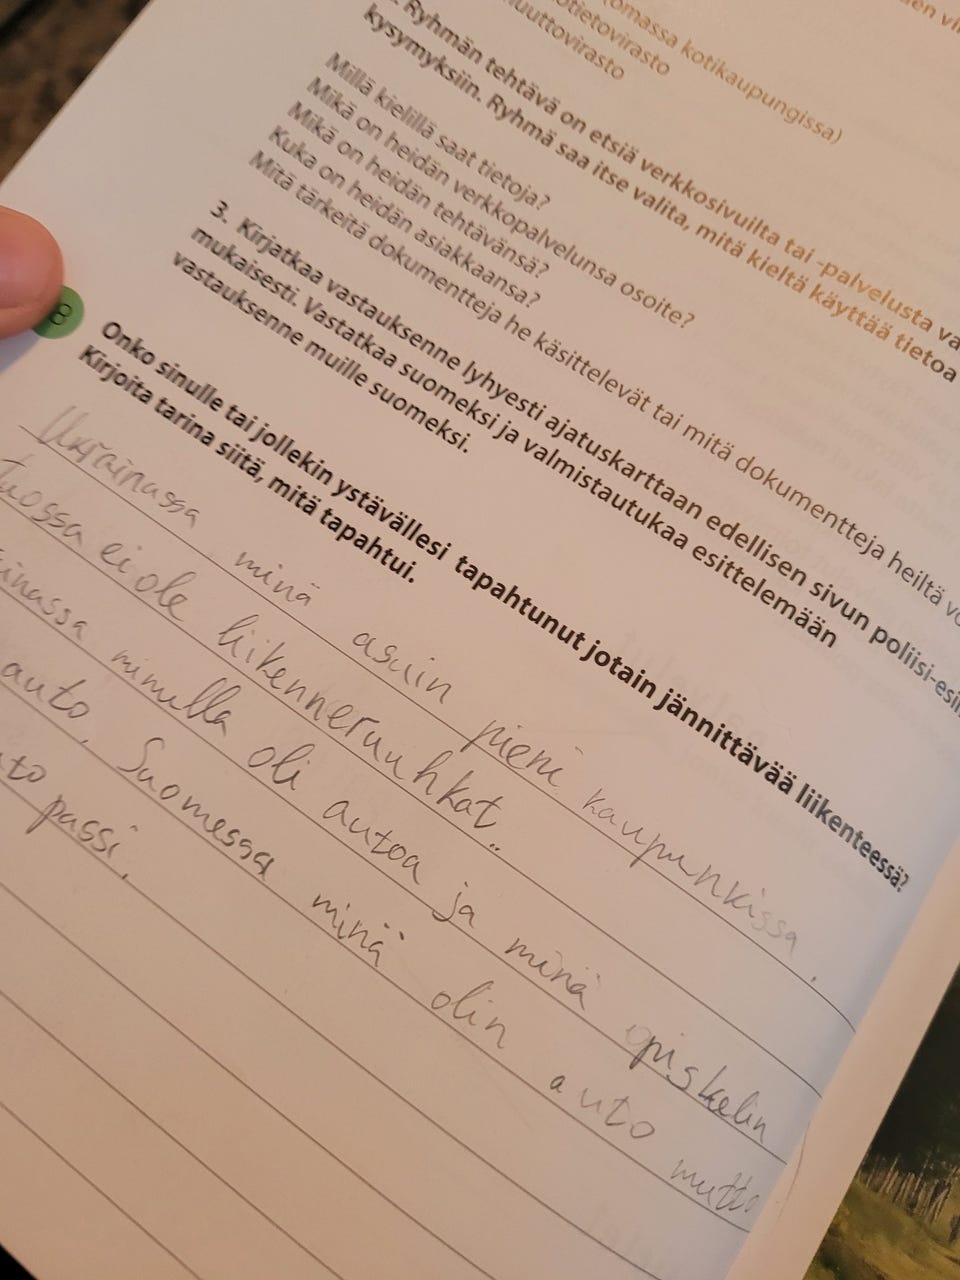 kotikaupungissa)
Ryhmän tehtävä on etsiä verkkosivuilta tai -palvelusta
kysymyksiin. Ryhmä saa itse valita, mitä kieltä käyttää tietoa
Millä kielillä saat tietoja?
Mikä on heidän verkkopalvelunsa osoite?
Mikä on heidän tehtävänsä?
Kuka on heidän asiakkaansa?
Mitä tärkeitä dokumentteja he käsittelevät tai mitä dokumentteja heiltä
3. Kirjatkaa vastauksenne lyhyesti ajatuskarttaan edellisen sivun
mukaisesti. Vastatkaa suomeksi ja valmistautukaa esittelemään
vastauksenne muille suomeksi.
8
Onko sinulle tai jollekin ystävällesi tapahtunut jotain jännittävää liikenteessä?
Kirjoita tarina siitä, mitä tapahtui.
Ukrainassa minä asuin pieni kaupunkissa.
tuossa ei ole liikenneruuhkat.
minulla oli autoa ja minä opiskelin
auto. Suomessa minä olin auto mutta
passi.